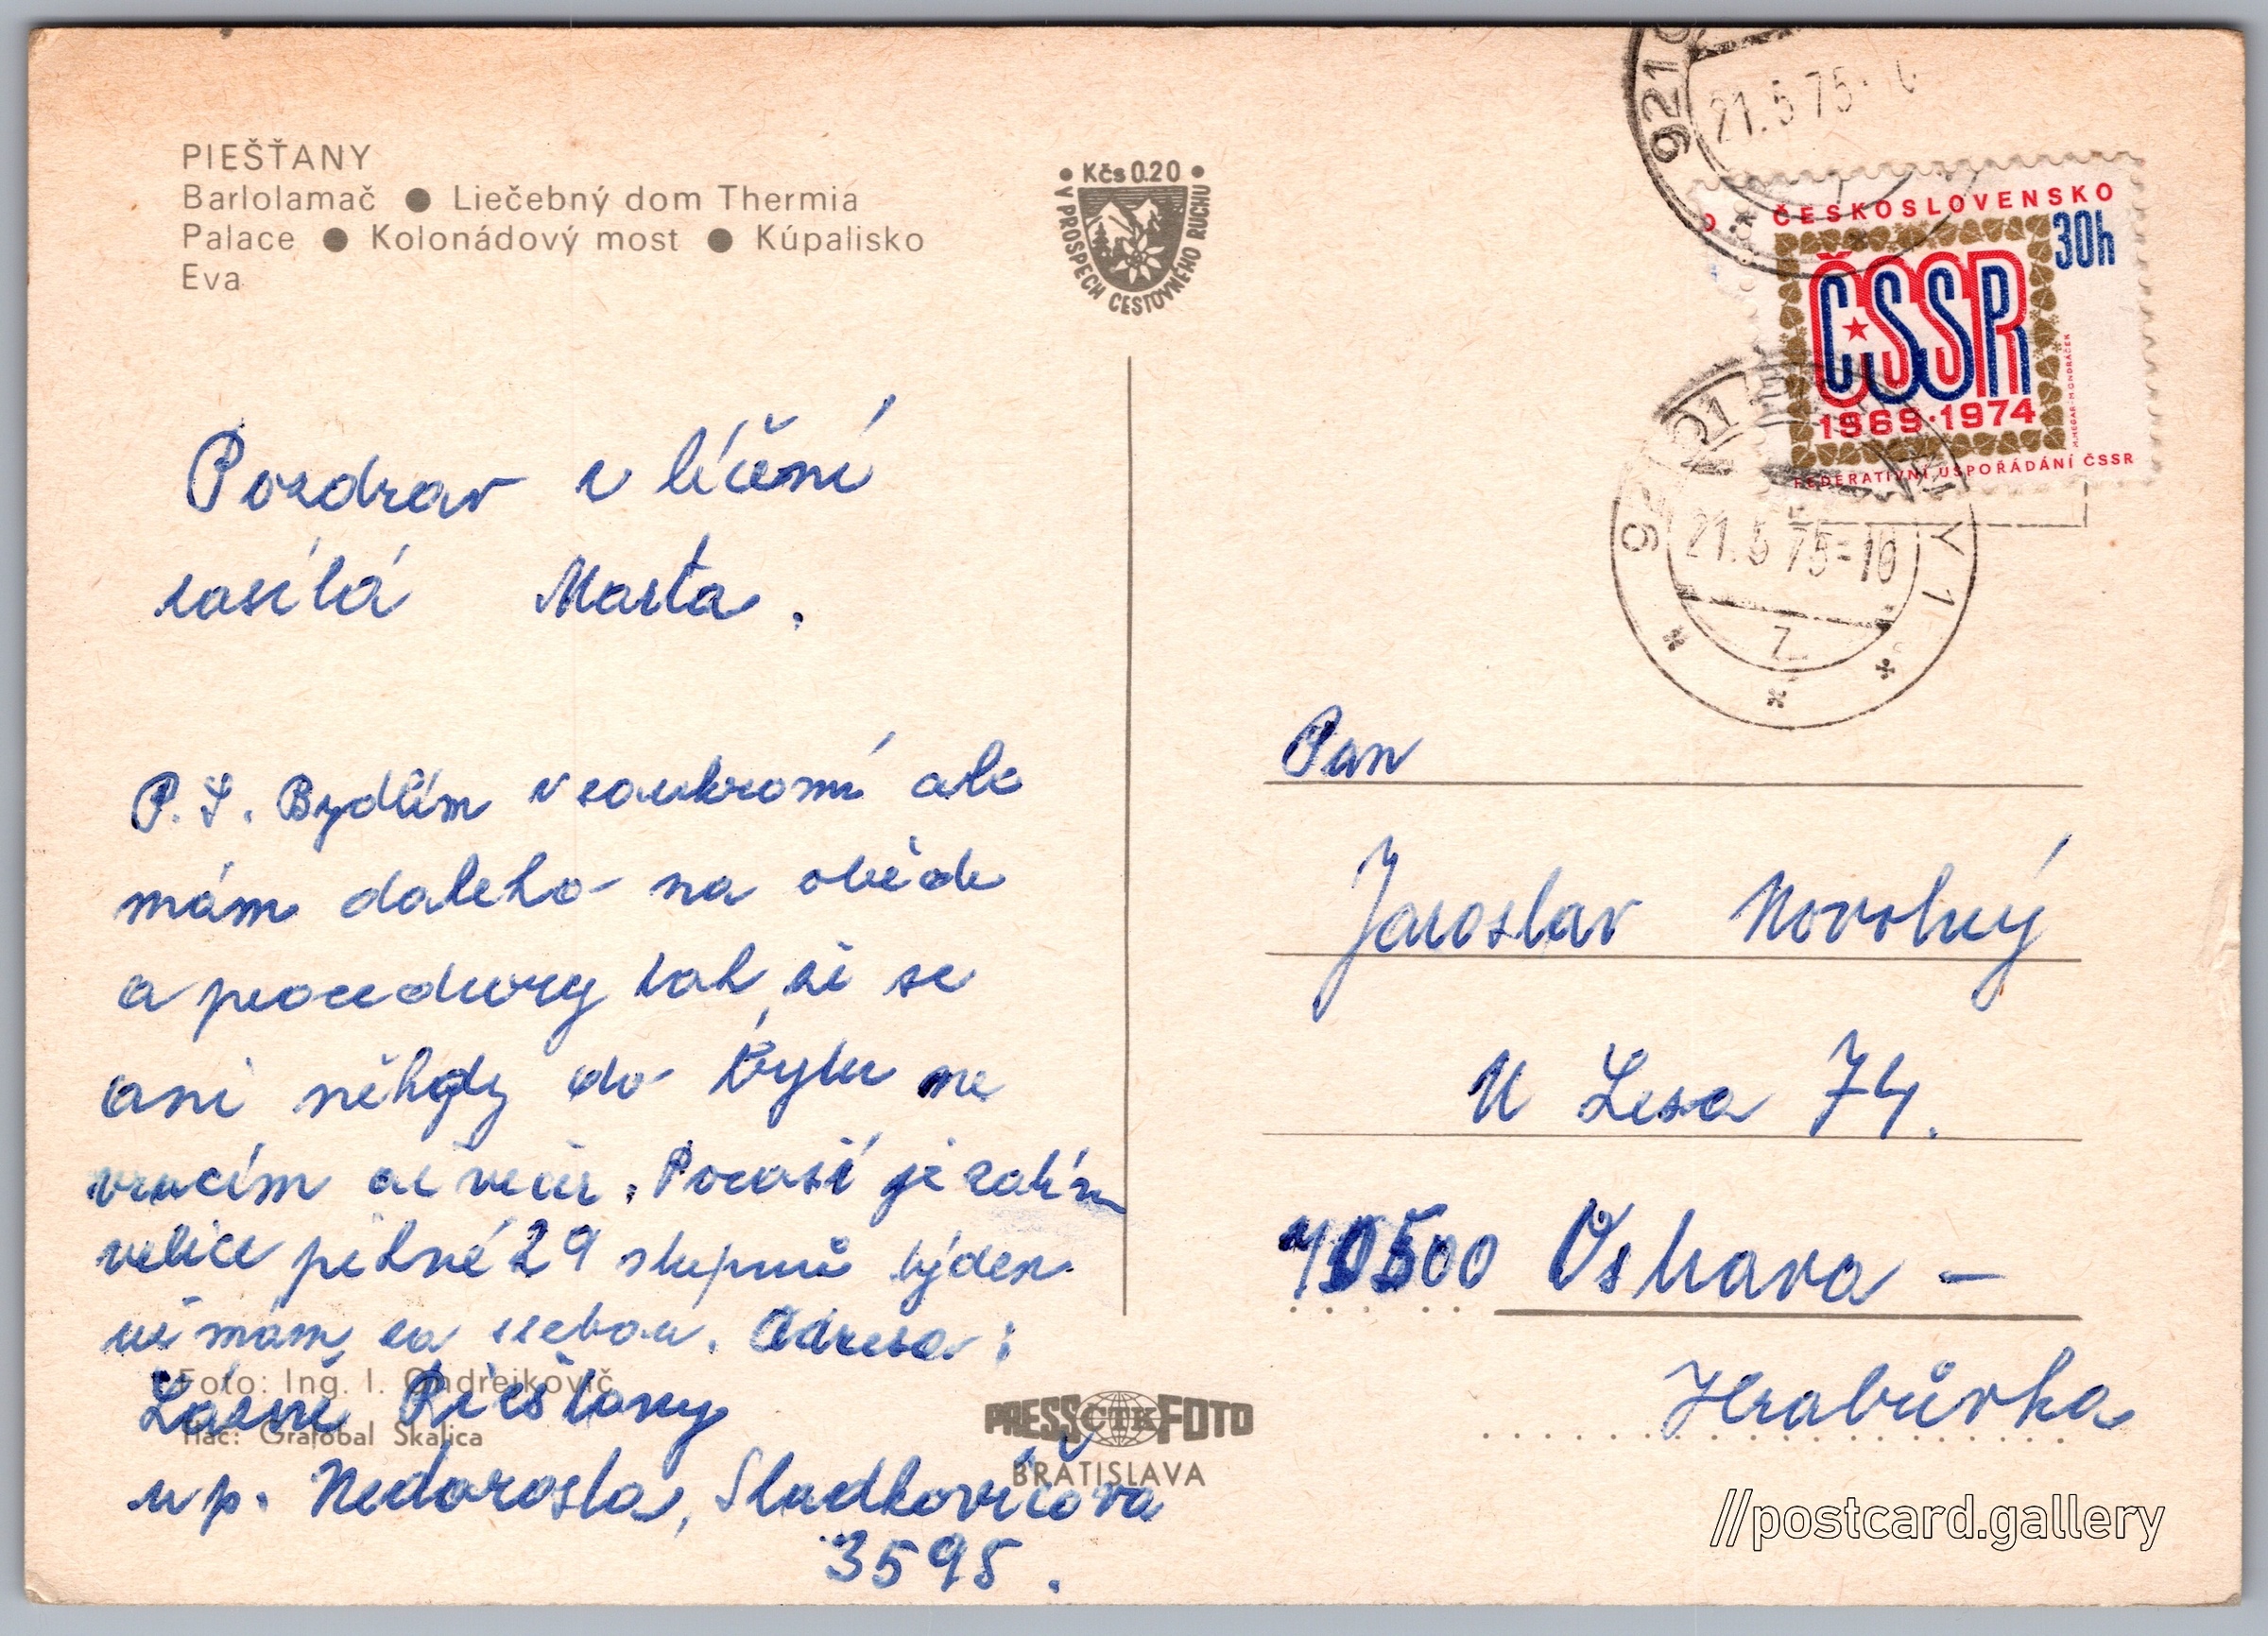 PIEŠŤANY
Barlolamač ● Liečebný dom Thermia
Palace ● Kolonádový most ● Kúpalisko
Eva
• Kčs 0.20 •
V PROSPECH CESTOVNÉHO RUCHU
Pozdrav z léčení
zasílá Marta.
P.S. Bydlím v soukromí ale
mám daleko na oběde
a procedury tak že se
ani někdy do bytu ne
vracím až večer. Počasí je zatím
velice pěkné 29 stupňů týden
už mám za sebou. Adresa:
Lázně Piešťany
u p. Nedorosta, Sladkovičova
3595.
Foto: Ing. I. Ondrejkovič
Tlač: Grafobal Skalica
PRESS ČTK FOTO
BRATISLAVA
921
21.5.75
ČESKOSLOVENSKO
30h
ČSSR
1969·1974
FEDERATIVNÍ USPOŘÁDÁNÍ ČSSR
921 Y 1
21.5.75-10
z
Pan
Jaroslav Novotný
U Lesa 74.
70500 Ostrava –
Hrabůvka
//postcard.gallery